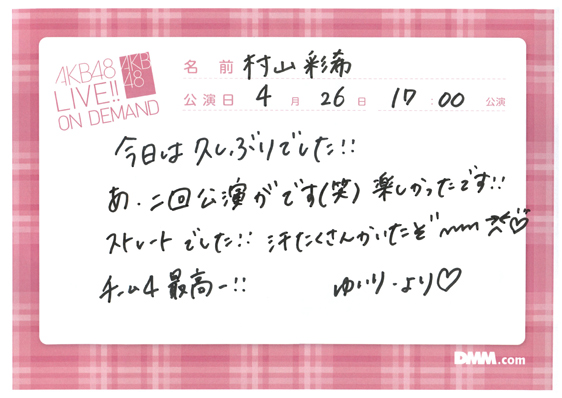 AKB48
LIVE!!
ON DEMAND
AKB
48
名前 村山彩希
公演日 4月26日 17:00 公演
今日は久しぶりでした!!
あ、二回公演がです(笑) 楽しかったです!!
ストレートでした!! 汗たくさんかいたぞ
チーム4最高ー!! ゆいりーより♡
DMM.com